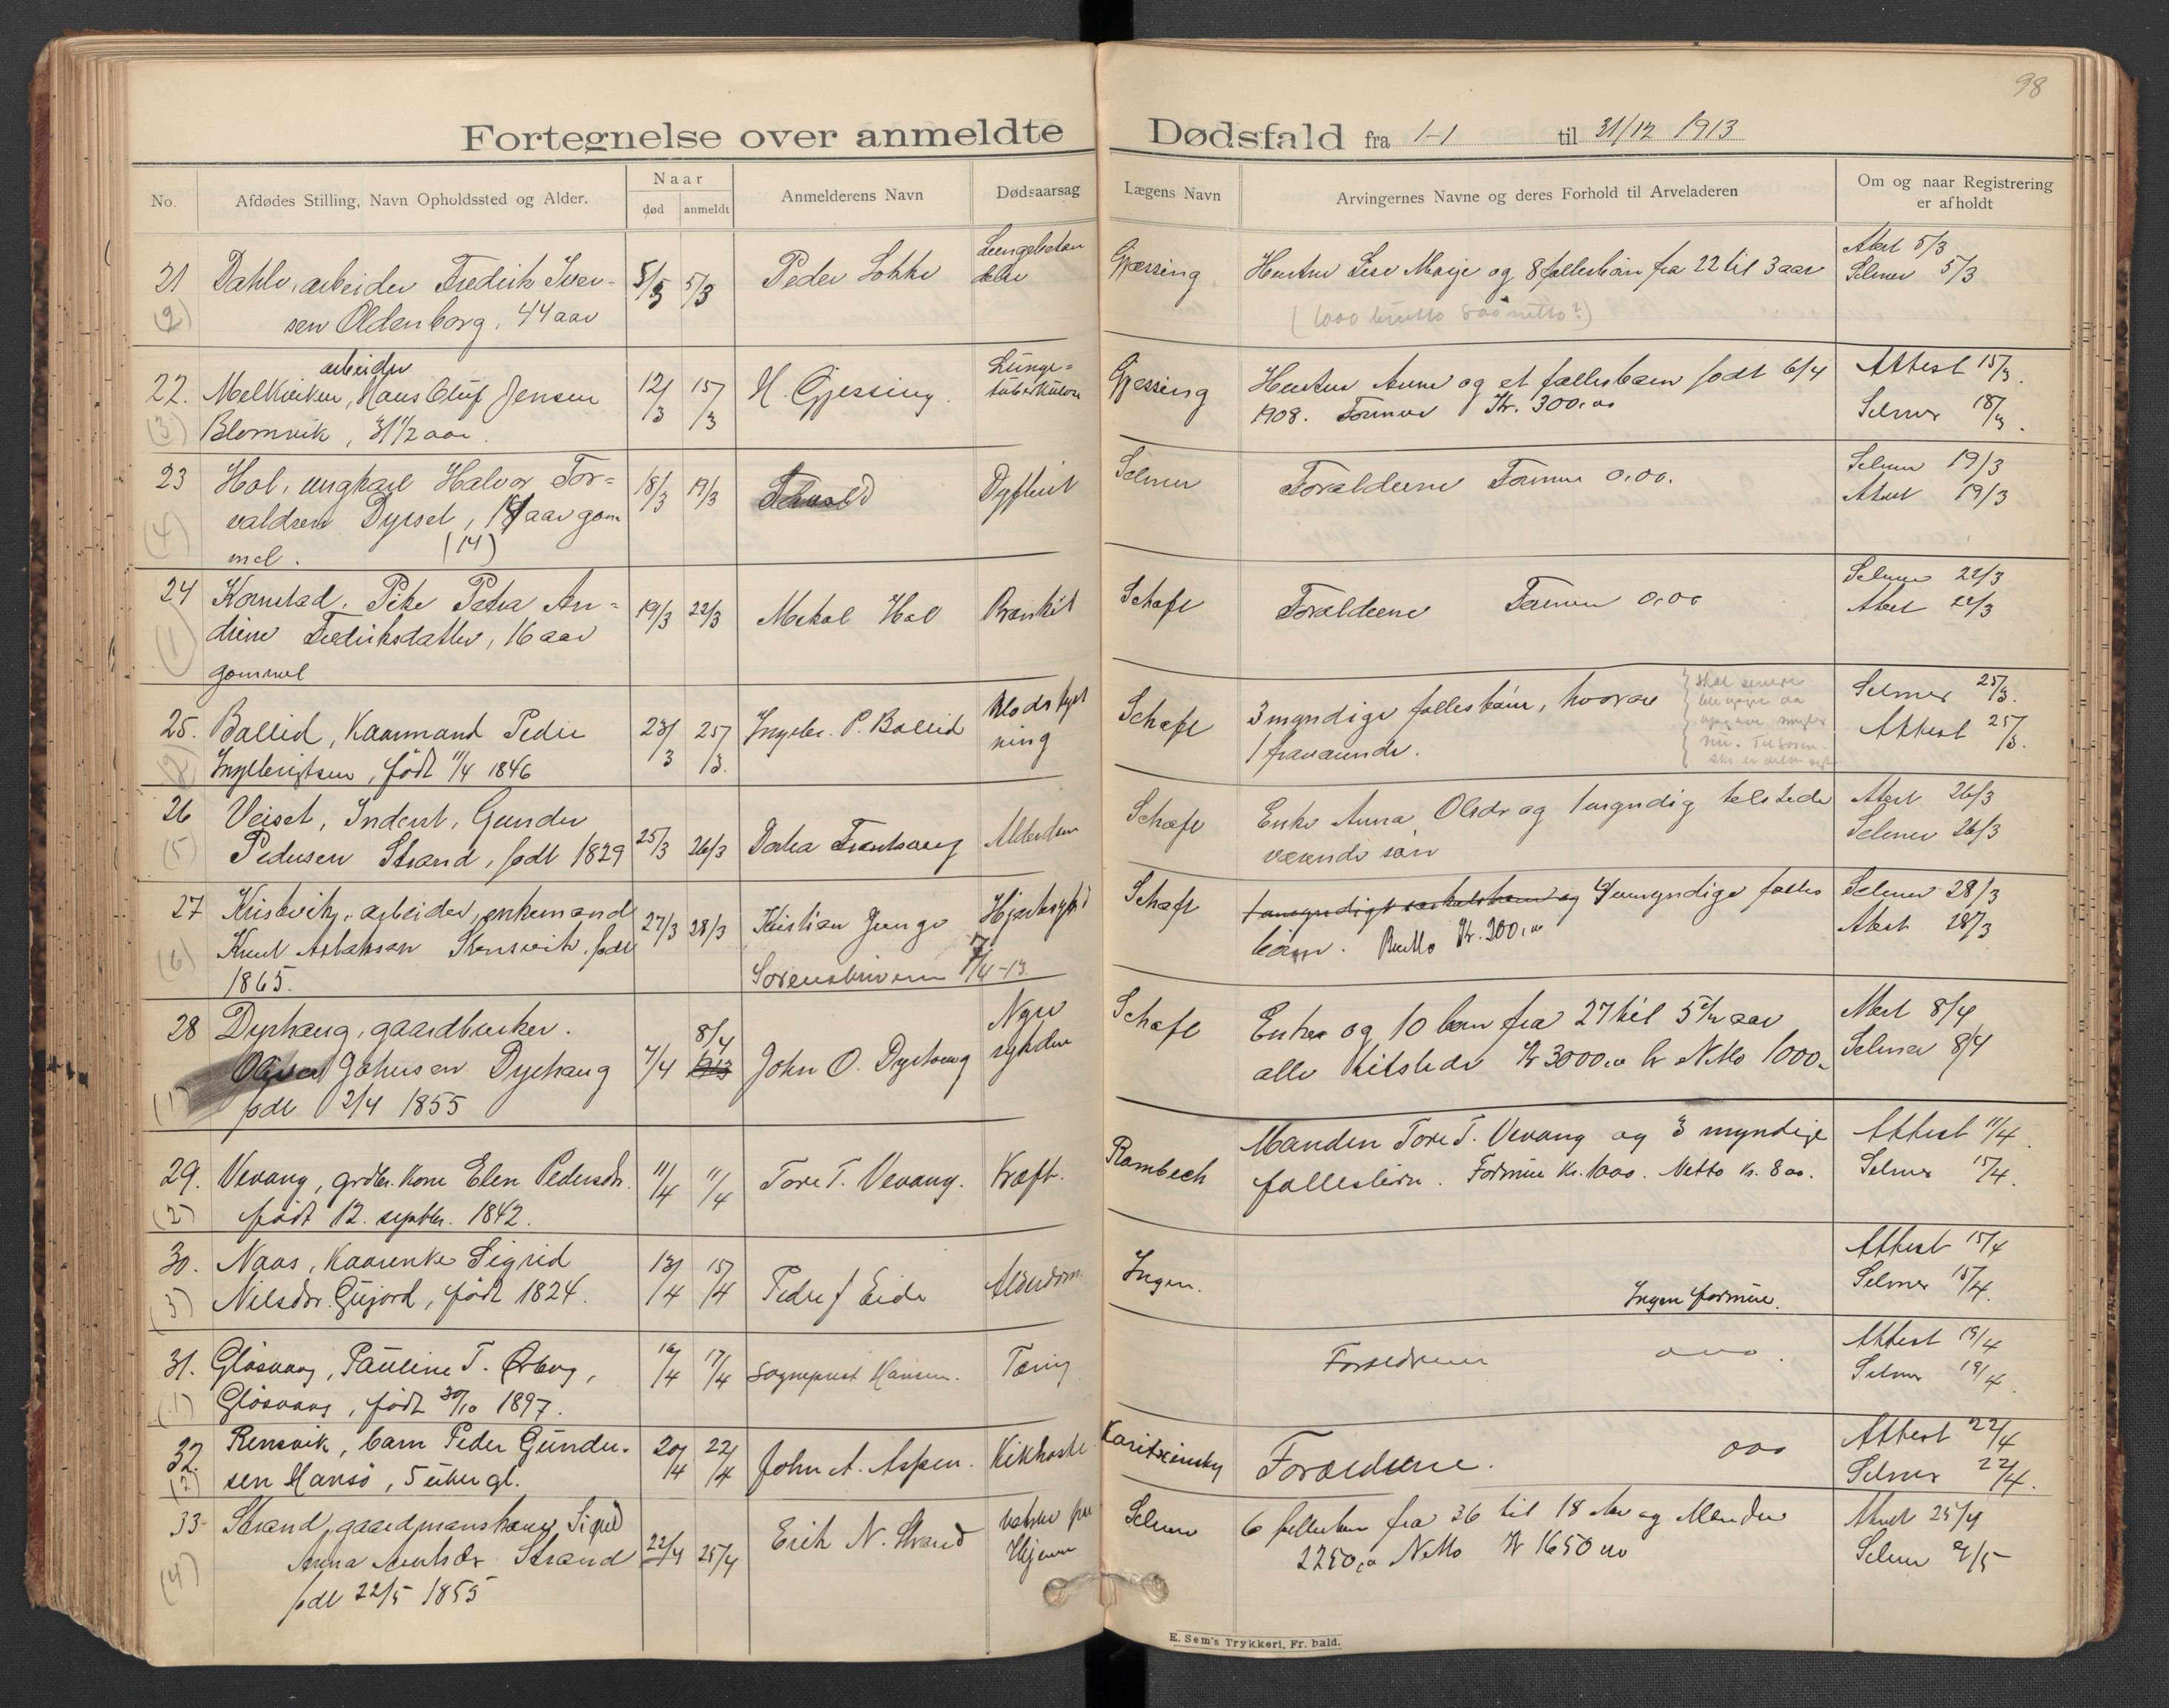 98
Fortegnelse over anmeldte Dødsfald fra 1-1 til 31/12 1913
No.
Afdødes Stilling, Navn Opholdssted og Alder.
Naar
død
anmeldt
Anmelderens Navn
Dødsaarsag
Lægens Navn
Arvingernes Navne og deres Forhold til Arveladeren
Om og naar Registrering
er afholdt
21
(2)
Dahle, arbeider Fredrik Iver-
sen Oldenborg, 44 aar
5/3
5/3
Peder Løkke
Lungebetæn
delse
Gjessing
Hustru Lise Marje og 8 fællesbörn fra 22 til 3 aar
(1000 brutto 800 netto?)
Attest 5/3
Selmer 5/3
22.
(3)
arbeider
Melkviken, Hans Oluf Jensen
Blomvik, 31 1/2 aar.
12/3
15/3
H. Gjessing.
Lunge=
tuberkulose
Gjessing
Hustru Anne og et fællesbarn født 6/4
1908. Formue Kr. 300,00
Attest 15/3.
Selmer 18/3.
23
(4)
Hol, ungkarl Halvor Tor=
valdsen Dyrset, 19 aar gam
mel. (14)
18/3
19/3
Dyfterit
Selmer
Forældrene Formue 0,00.
Selmer 19/3
Attest 19/3
24
(1)
Kornstad. Pike Petra An=
drine Fredriksdatter, 16 aar
gammel
19/3
22/3
Mekal Hol
Bronkit
Schøft
Forældrene Formue 0,00
Selmer 22/3
Attest 22/3
25.
Bollid, Kaarmand Peder
Ingebrigtsen, født 11/4 1846
23/3
25/3.
Ingebr. P. Bollid
Blodstyrt
ning
3 myndige fællesbörn, hvorav
1 fraværende.
Selmer 25/3.
Attest 25/3.
26
(5)
Veiset, Inderst, Gunder
Pedersen Strand, født 1829
25/3
26/3
Alderdom
Enke Anna Olsdr og 1 myndig tilstede
værende sön
Attest 26/3
Selmer 26/3
27
(6)
Kristvik, arbeider, enkemand
Knut Aslaksen Stensvik, født
1865.
27/3
28/3
Kristian Junge
Sorenskriveren 7/4-13.
börn. Brutto Kr. 200,00
Selmer 28/3
Attest 28/3
28
(1)
Dyrhaug, gaardbruker.
Johnsen Dyrhaug
født 2/4 1855
7/4
8/4
John O. Dyrhaug
Nyre
sykdom
Enken og 10 barn fra 27 til 5 1/2 aar
alle tilstede Kr 3000,00 br Netto 1000.
Attest 8/4
Selmer 8/4
29.
(2)
Vevang, grdbr. kone Elen Pedersdr.
født 12. septbr. 1842.
11/4
11/4
Tore T. Vevang.
Kræft.
Rambech
Manden Tore T. Vevang og 3 myndige
fællesbörn. Formue Kr. 1000. Netto Kr. 800.
Attest 11/4.
Selmer 15/4.
30.
(3)
Naas, Kaarenke Sigrid
Nilsdr. Gujord, født 1824.
13/4
15/4
Peder J Eide
Alderdom.
Ingen.
Ingen formue.
Attest 15/4
Selmer 15/4.
31.
(1)
Glösvaag, Pauline T. Ørbog,
Glösvaag, født 30/10 1897.
16/4
17/4
Sogneprest Hansen.
Tæring
Forældrene 0,00.
Attest 19/4
Selmer 19/4.
32.
(2)
Rensvik, barn Peder Gunder-
sen Hansö, 5 uker gl.
20/4
22/4
John A. Aspen.
Kikhoste
Forældrene. 000
Attest 22/4
Selmer 22/4.
33.
(4)
Strand, gaardmanskone Sigrid
Anna Strand
født 22/5 1855
22/4
25/4
Erik N. Strand
Selmer
6 fællesbarn fra 36 til 18 aar og Manden
2250,00 Netto Kr 1650 00
Attest 25/4
Selmer 2/5
E. Sem's Trykkeri, Fr. hald.